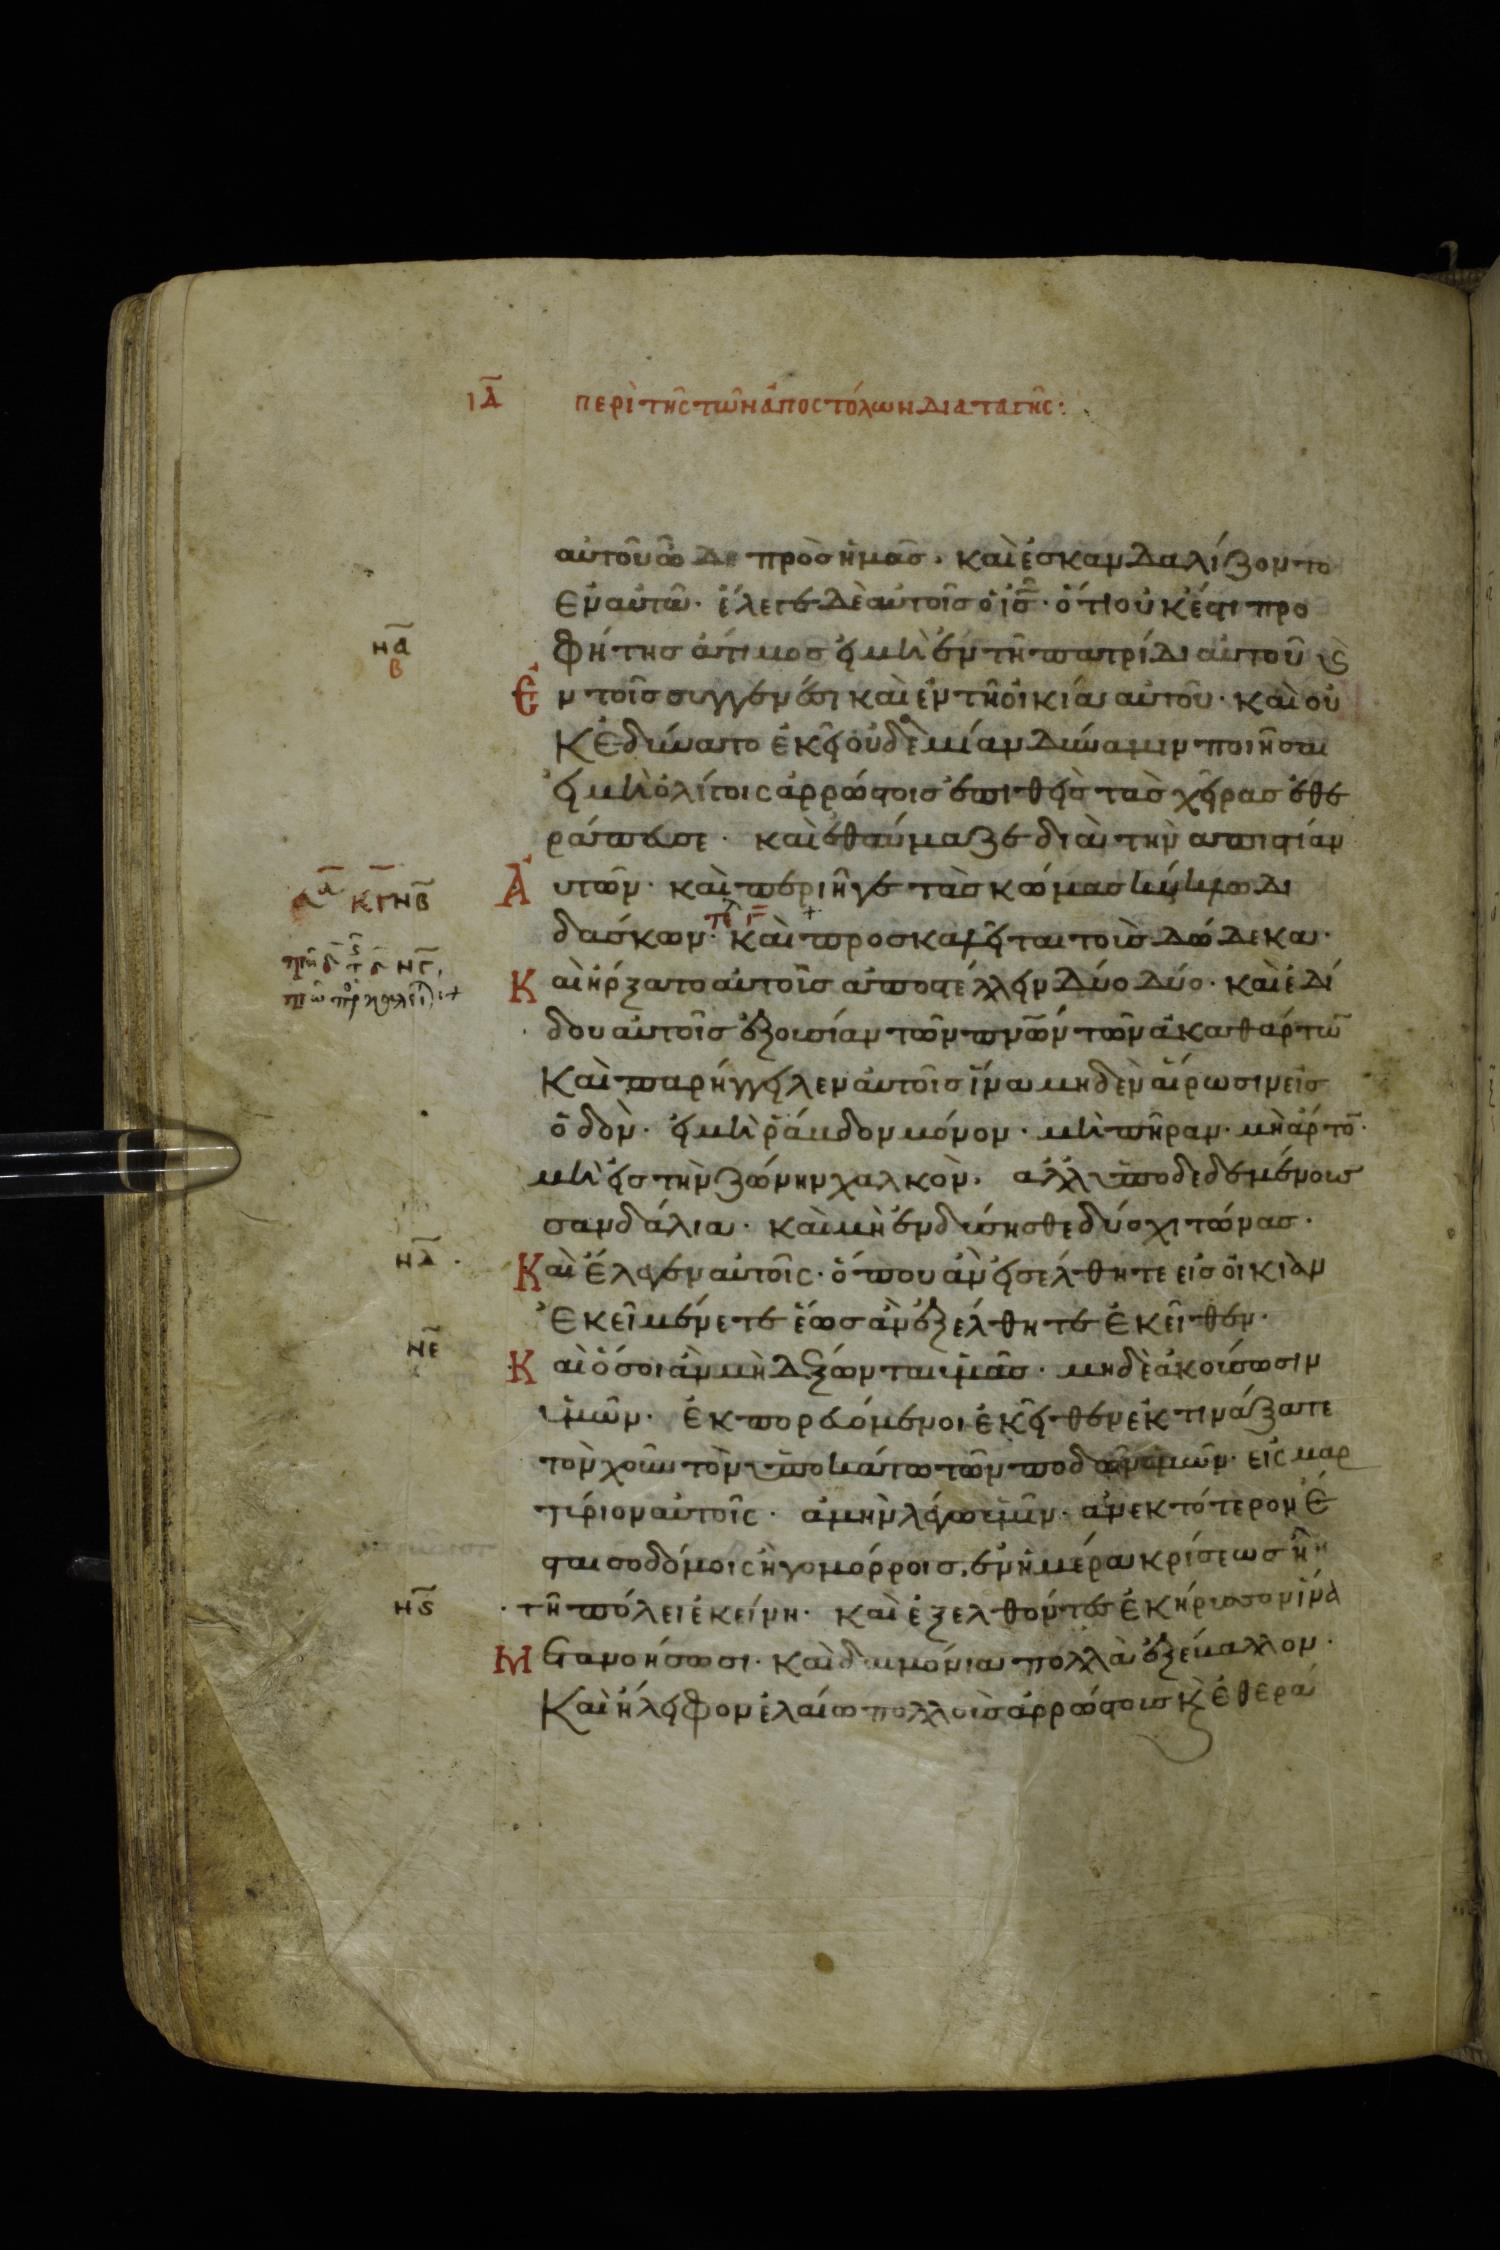 ιδ περὶ τῆς τῶν ἀποστόλων διαταγῆς:
αὐτοῦ ὧδε πρὸς ἡμᾶς. καὶ ἐσκανδαλίζοντο
ἐν αὐτῶ· ἔλεγε δὲ αὐτοῖς ὁ ις· ὅτι οὐκ ἔστι προ
φήτης ἄτιμος εἰ μὴ ἐν τῆ πατρίδι αὐτοῦ κ(αὶ)
να
β
Ἐν τοῖς συγγενέσι καὶ ἐν τῆ οἰκία αὐτοῦ· καὶ οὐ
κ ἐδύνατο ἐκεῖ οὐδεμίαν δύναμιν ποιῆσαι
εἰ μὴ ὀλίγοις ἀρρώστοις ἐπιθεὶς τὰς χεῖρας ἐθε
ράπευσε· καὶ ἐθαύμαζε διὰ τὴν ἀπιστίαν
Αὐτῶν· καὶ περιῆγε τὰς κώμας κύκλω δι
νβ
δάσκων· καὶ προσκαλεῖται τοὺς δώδεκα·
νγ
Καὶ ἤρξατο αὐτοῖς ἀποστέλλειν δύο δύο· καὶ ἐδί
δου αὐτοῖς ἐξουσίαν τῶν πνων τῶν ἀκαθάρτω
καὶ παρήγγειλεν αὐτοῖς ἵνα μηδὲν αἴρωσιν εἰς
ὁδὸν· εἰ μὴ ῥάβδον μόνον· μὴ πήραν· μὴ ἄρτο·
μὴ εἰς τὴν ζώνην χαλκὸν. ἀλλ ὑποδεδεμένους
σανδάλια· καὶ μὴ ἐνδύσησθε δύο χιτώνας·
νδ
Καὶ ἔλεγεν αὐτοῖς· ὅπου ἂν εἰσελθητε εἰς οἰκίαν
ἐκεῖ μένετε ἕως ἂν ἐξελθητε ἐκεῖθεν·
νε
Καὶ ὅσοι ἂν μὴ δέξωνται ὑμᾶς· μηδὲ ἀκούσωσιν
ὑμῶν· ἐκπορευόμενοι ἐκεῖθεν ἐκτινάξατε
τὸν χοῦν τὸν ὑποκάτω τῶν ποδῶν ὑμῶν· εἰς μαρ
τύριον αὐτοῖς· ἀμὴν λέγω ὑμῖν· ἀνεκτότερον ἔ
σται σοδόμοις ἢ γομόρροις, ἐν ἡμέρα κρίσεως ἢ
τῆ πόλει ἐκείνη· καὶ ἐξελθόντες ἐκήρυσσον ἵνα
νϛ
Μετανοήσωσι· καὶ δαιμόνια πολλὰ ἐξέβαλλον·
καὶ ἤλειφον ἐλαίω πολλοὺς ἀρρώστους κ(αὶ) ἐθερά